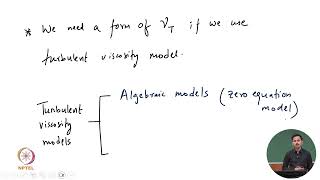 * We need a form of ν_T if we use
turbulent viscosity model.
Algebraic models (zero equation
model)
Turbulent
viscosity
models
NPTEL